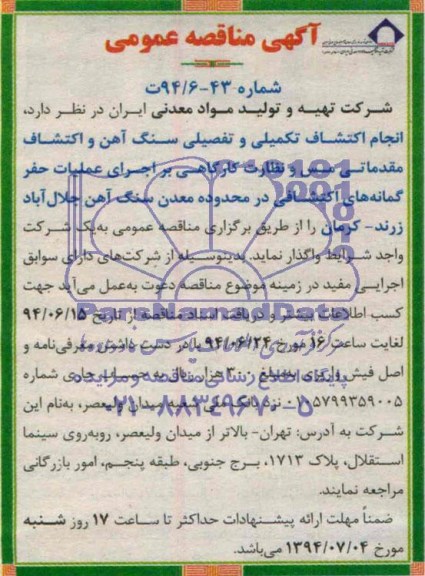 آگهی مناقصه عمومی
شماره ۴۳-۹۴/۶ت
شرکت تهیه و تولید مواد معدنی ایران در نظر دارد،
انجام اکتشاف تکمیلی و تفصیلی سنگ آهن و اکتشاف
مقدماتی مس و نظارت کارگاهی بر اجرای عملیات حفر
گمانه‌های اکتشافی در محدوده معدن سنگ آهن جلال‌آباد
زرند- کرمان را از طریق برگزاری مناقصه عمومی به‌یک شرکت
واجد شرایط واگذار نماید. بدینوسیله از شرکت‌های دارای سوابق
اجرایی مفید در زمینه موضوع مناقصه دعوت به‌عمل می‌آید جهت
کسب اطلاعات بیشتر و دریافت اسناد مناقصه از تاریخ ۹۴/۰۶/۱۵
لغایت ساعت ۱۶ مورخ ۹۴/۰۶/۲۴ با در دست داشتن معرفی‌نامه و
اصل فیش واریزی به‌مبلغ هزار ریال به حساب جاری شماره
نزد بانک ملی شعبه میدان ولیعصر، به‌نام این
شرکت به آدرس: تهران- بالاتر از میدان ولیعصر، روبه‌روی سینما
استقلال، پلاک ۱۷۱۳، برج جنوبی، طبقه پنجم، امور بازرگانی
مراجعه نمایند.
ضمناً مهلت ارائه پیشنهادات حداکثر تا ساعت ۱۷ روز شنبه
مورخ ۱۳۹۴/۰۷/۰۴ می‌باشد.
ParsNamadData
پایگاه اطلاع رسانی مناقصه و مزایده
۰۲۱-۸۸۳۴۹۶۷۰-۵